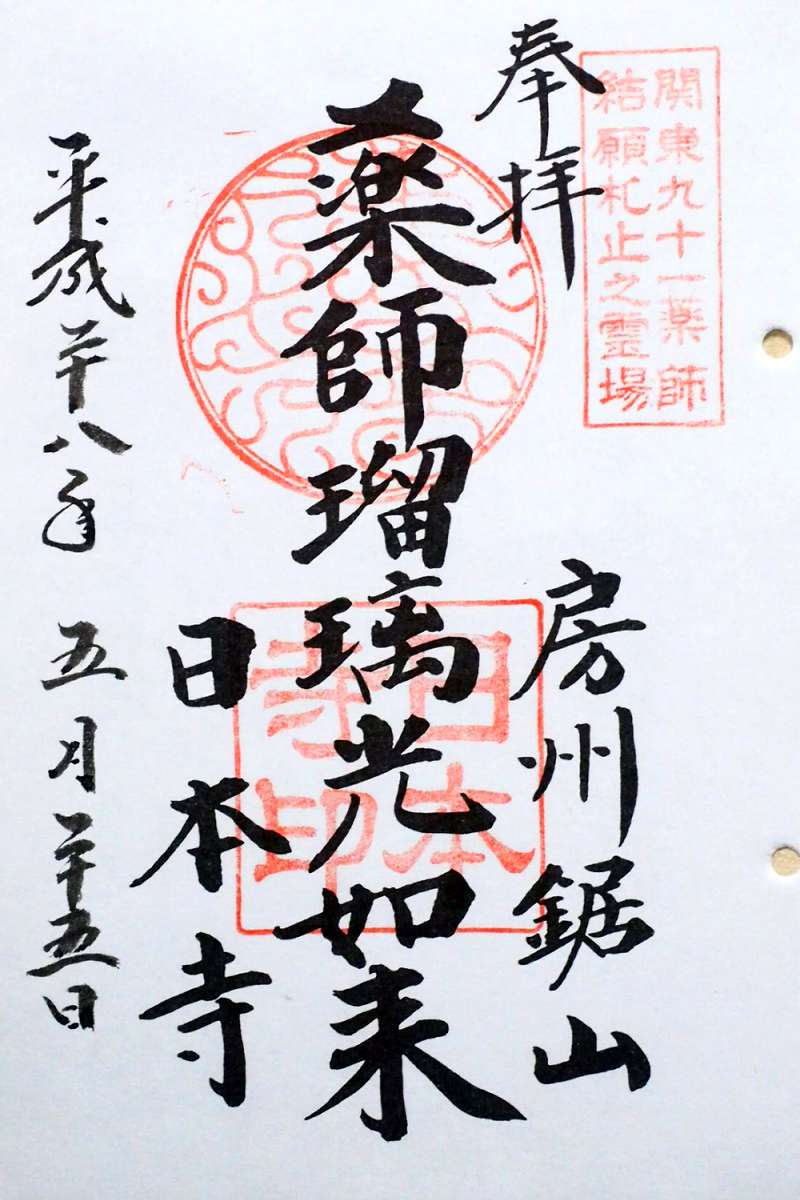 関東九十一薬師
結願札止之霊場
奉拝
房州鋸山
薬師瑠璃光如来
日本寺
日本
寺印
平成二十八年 五月二十五日